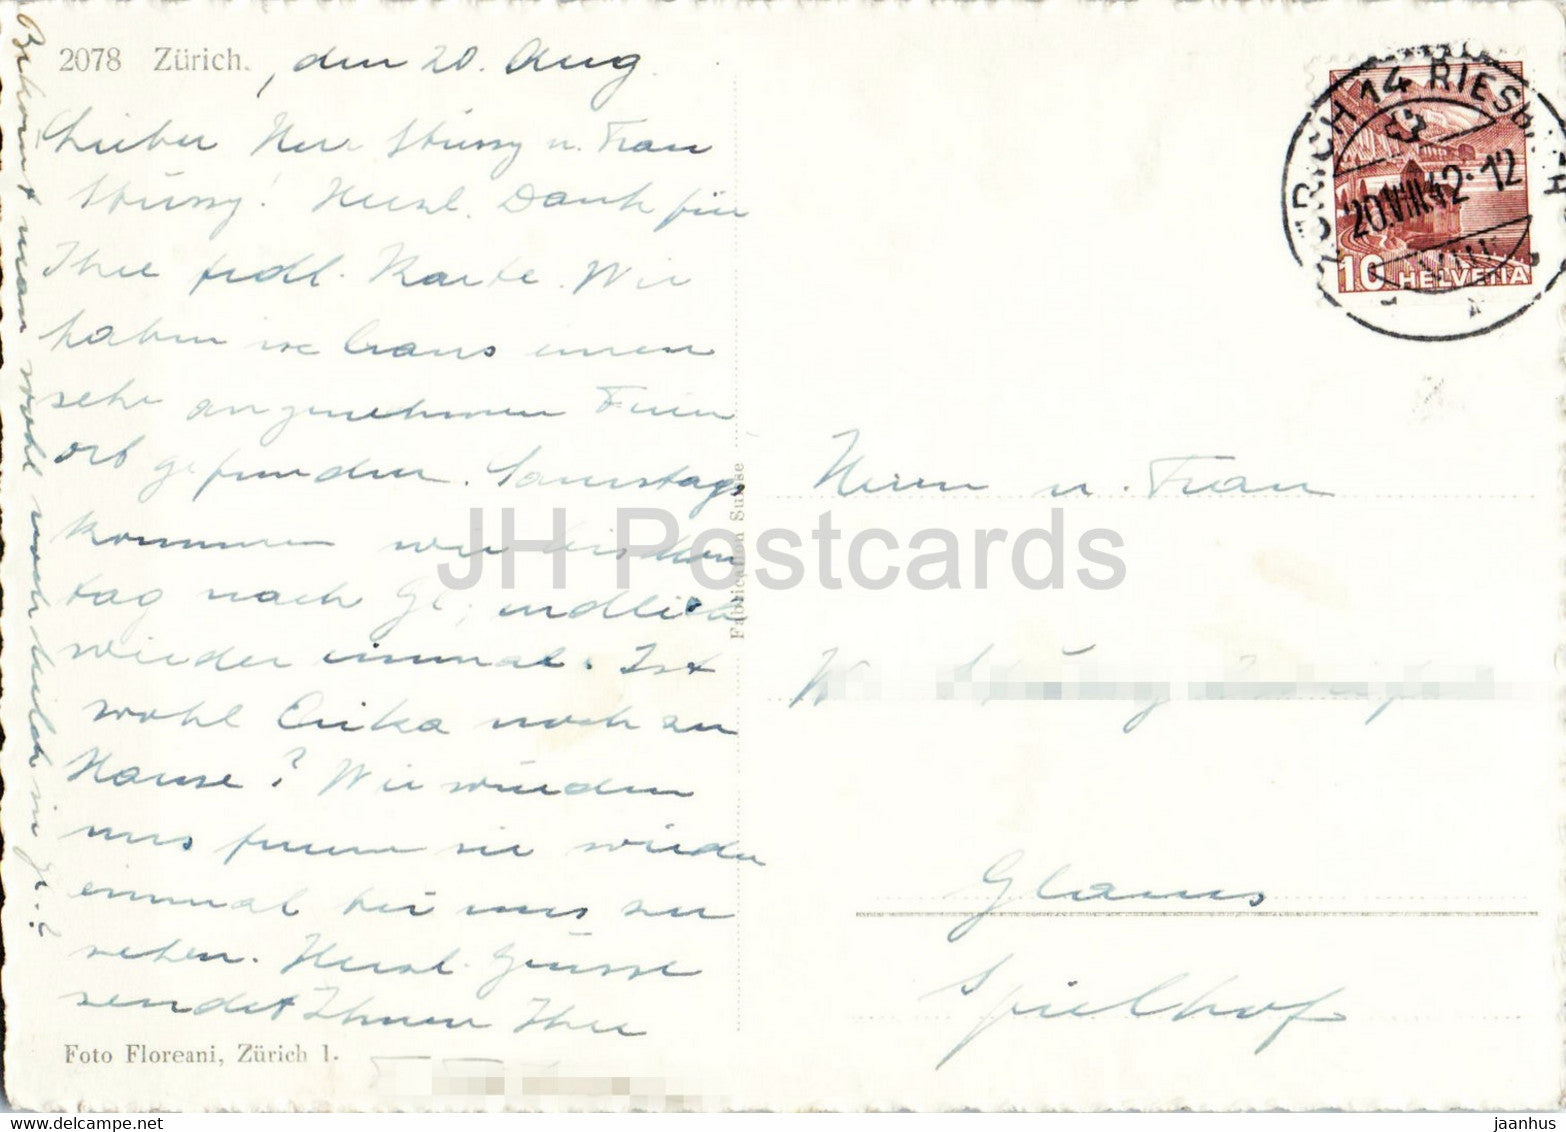 2078 Zürich. , den 20. Aug.
Lieber Herr Stüssy u. Frau
Stüssy! Herzl. Dank für
Ihre frdl. Karte. Wir
haben in Braus einen
sehr angenehmen Ferien
ort gefunden. Samstags
kommen wir bis
tag nach Gl, endlich
wieder einmal. Ist
wohl Erika noch zu
Hause? Wir würden
uns freuen sie wieder
einmal bei uns zu
sehen. Herzl. Grüsse
sendet Ihnen Ihre
Bekommt man wohl noch Milch in Gl.?
Foto Floreani, Zürich 1.
Fabrication Suisse
ZÜRICH 14 RIESBACH
20.VIII.42.12
VIII
10 HELVETIA
Herrn u. Frau
Glarus
Spielhof
JH Postcards
delcampe.net
jaanhus